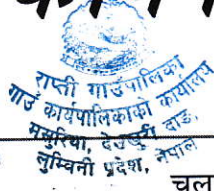 राप्ती गाउँपालिका
गाउँ कार्यपालिकाको कार्यालय
मसुरिया, देउखुरी दाङ,
लुम्बिनी प्रदेश, नेपाल
चल